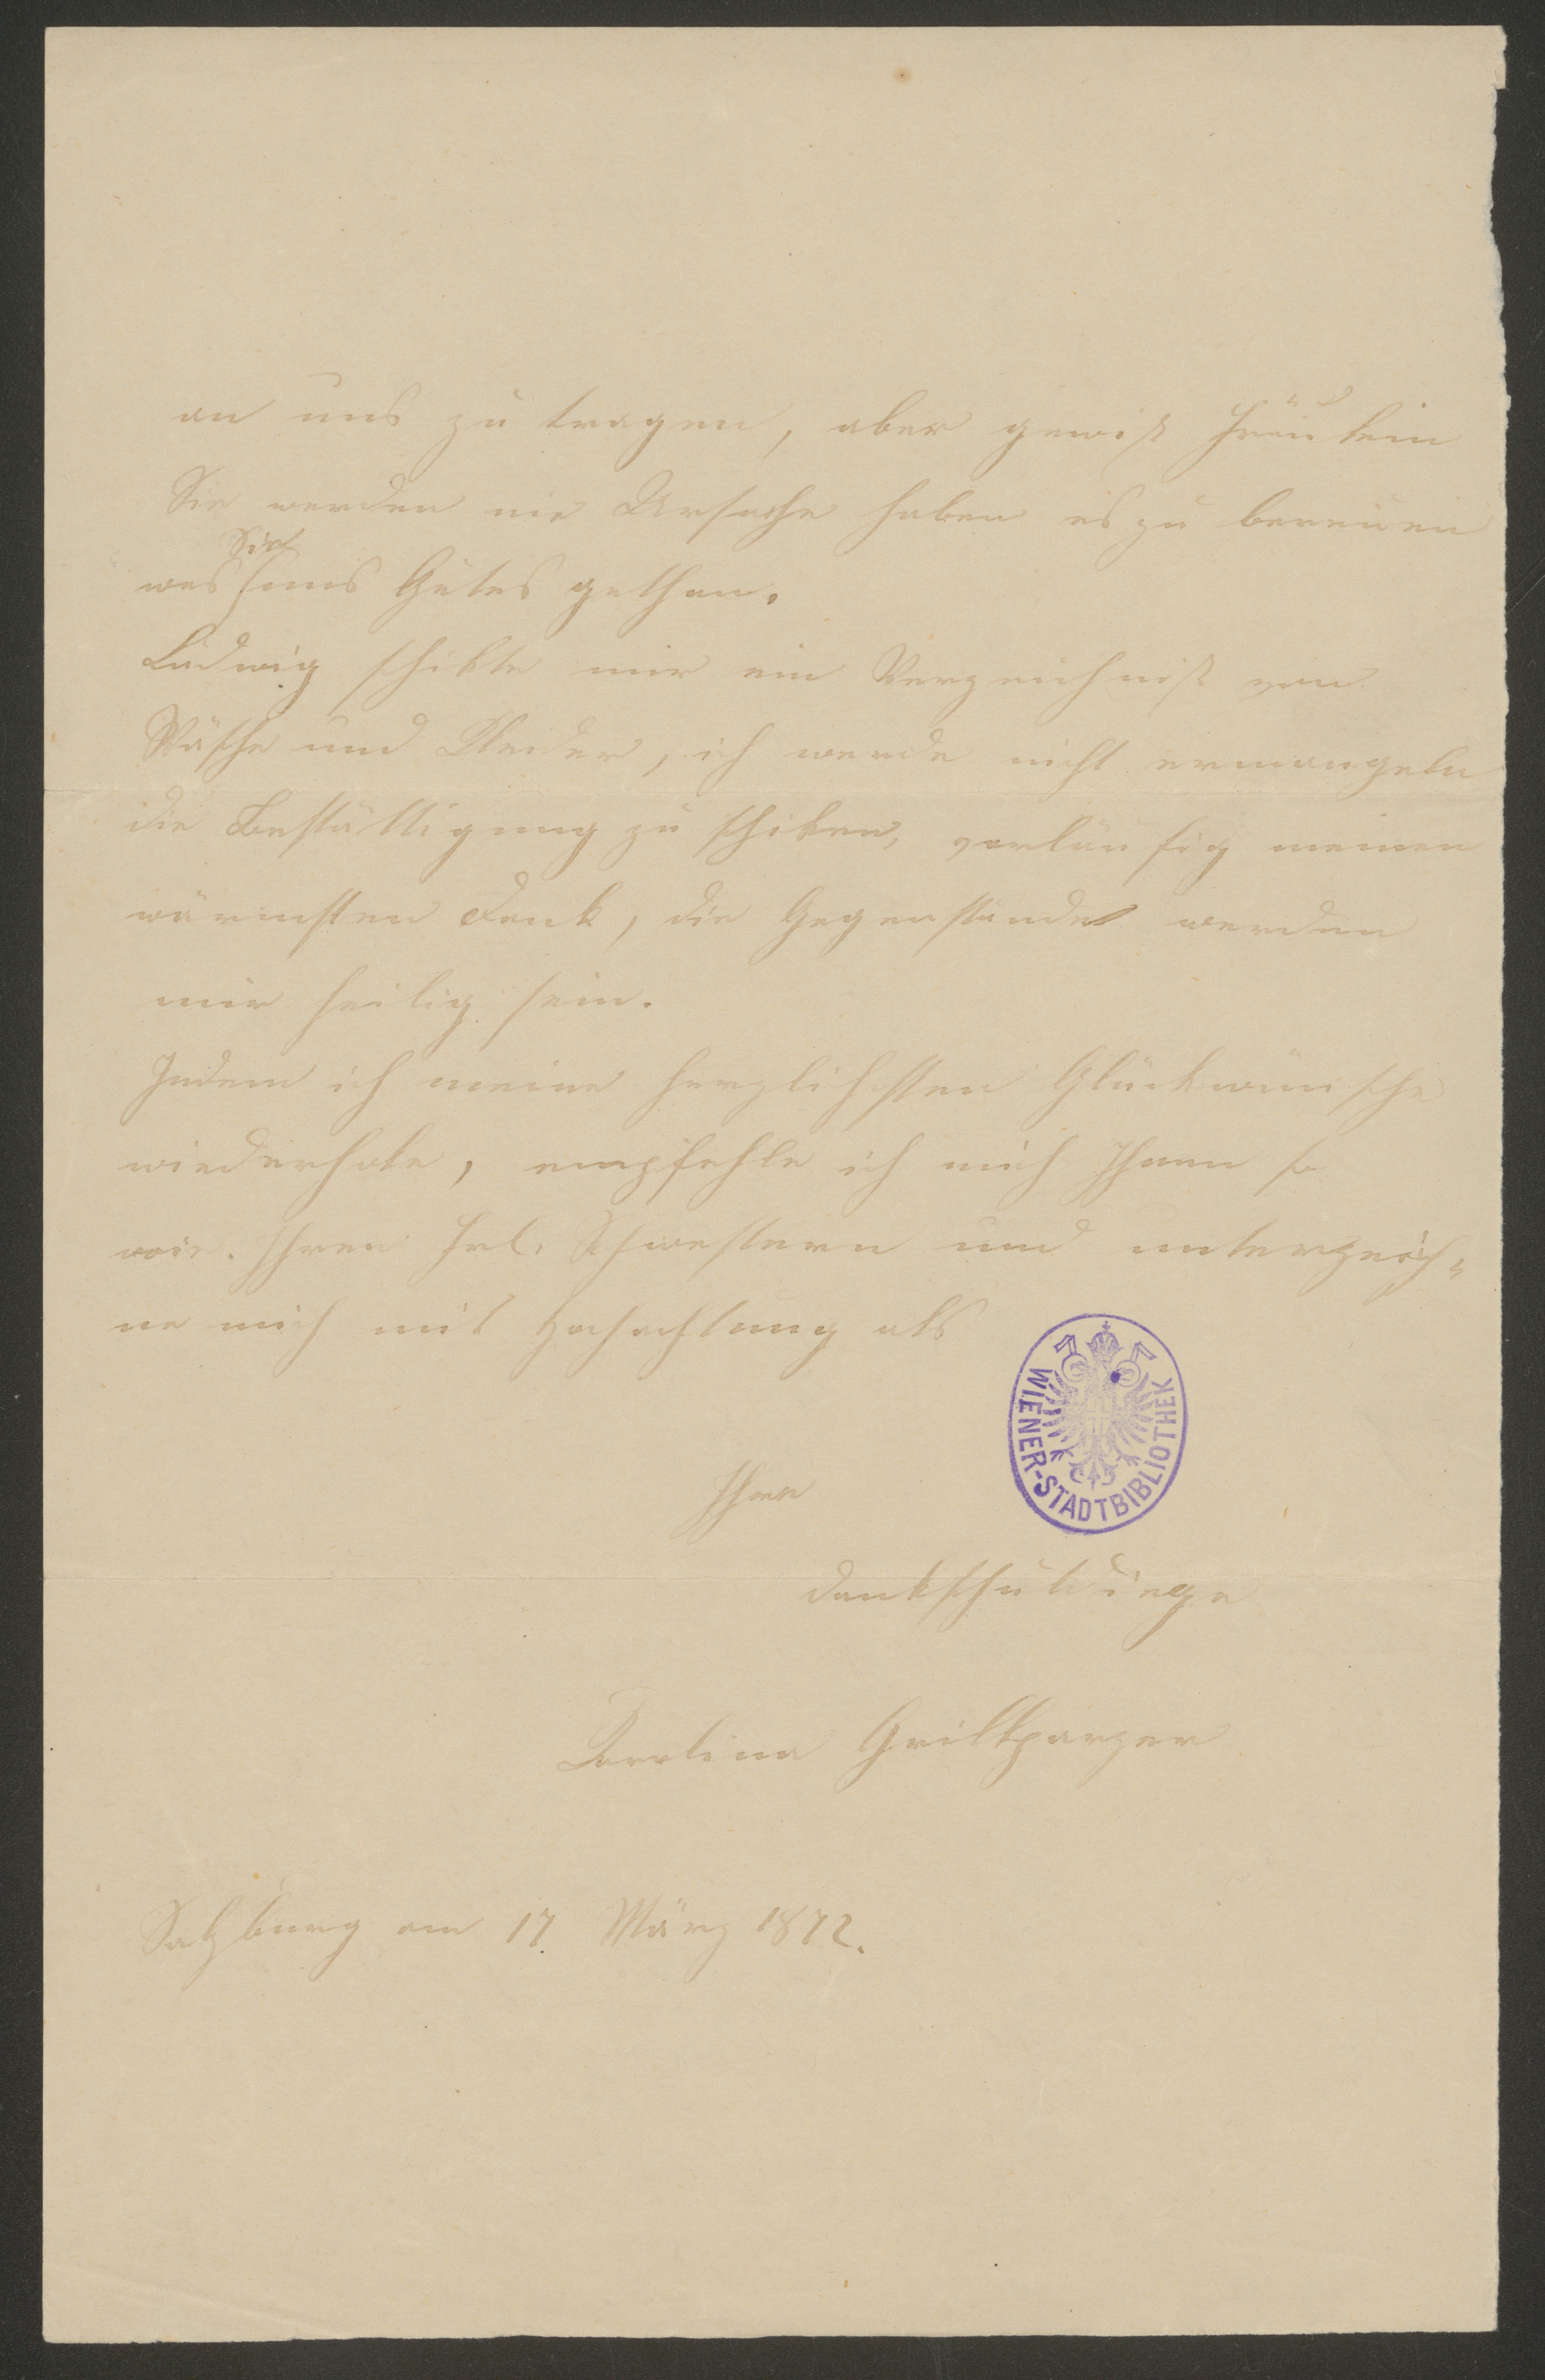 an uns zu tragen, aber gewiß Fräulein
Sie werden nie Ursache haben es zu bereuen
was Sie uns Gutes gethan.
Ludwig schikte mir ein Verzeichniß von
Wäsche und Kleider, ich werde nicht ermangeln
die Bestättigung zu schiken, vorläufig meinen
wärmsten Dank, die Gegenstände werden
mir heilig sein.
Indem ich meine herzlichsten Glückwünsche
wiederhole, empfehle ich mich Ihnen so
wie Ihren Frl. Schwestern und unterzeich-
ne mich mit Hochachtung als
Ihre
dankschuldige
Karolina Grillparzer
Salzburg am 17. März 1872.
WIENER-STADTBIBLIOTHEK